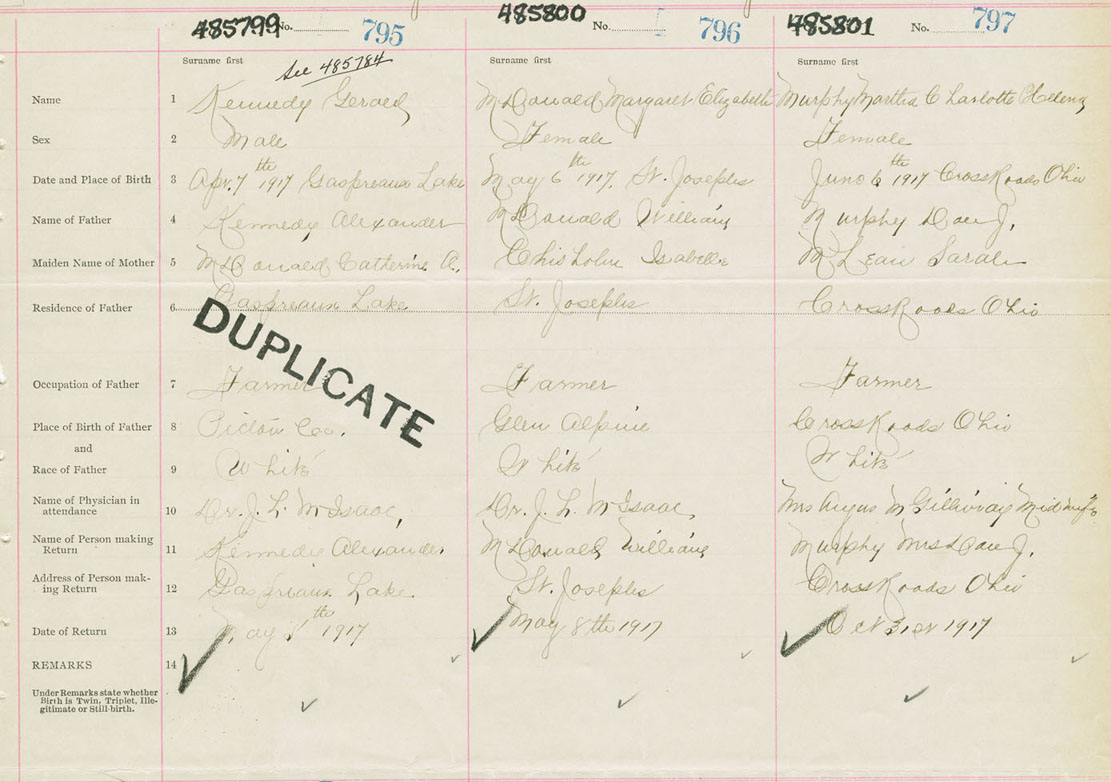 485799 No. 795 485800 No. 796 485801 No. 797
Surname first Surname first Surname first
See 485784
Name 1 Kennedy Gerald McDonald Margaret Elizabeth Murphy Martha Charlotte Helena
Sex 2 Male Female Female
Date and Place of Birth 3 Apr. 7th 1917 Gaspreaux Lake May 6th 1917. St. Josephs June 6th 1917 Cross Roads Ohio
Name of Father 4 Kennedy Alexander McDonald William Murphy Dan J.
Maiden Name of Mother 5 McDonald Catherine A. Chisholm Isabelle McLean Sarah
Residence of Father 6 Gaspreaux Lake St. Josephs Cross Roads Ohio
DUPLICATE
Occupation of Father 7 Farmer Farmer Farmer
Place of Birth of Father 8 Pictou Co. Glen Alpine Cross Roads Ohio
and
Race of Father 9 White White White
Name of Physician in
attendance 10 Dr. J. L. McIsaac, Dr. J. L. McIsaac, Mrs Angus McGillivray Midwife
Name of Person making
Return 11 Kennedy Alexander McDonald William Murphy Mrs Dan J.
Address of Person mak-
ing Return 12 Gaspriaux Lake St. Josephs Cross Roads Ohio
Date of Return 13 May th 1917 May 8th 1917 Oct 31st 1917
REMARKS 14
Under Remarks state whether
Birth is Twin, Triplet, Ille-
gitimate or Still-birth.